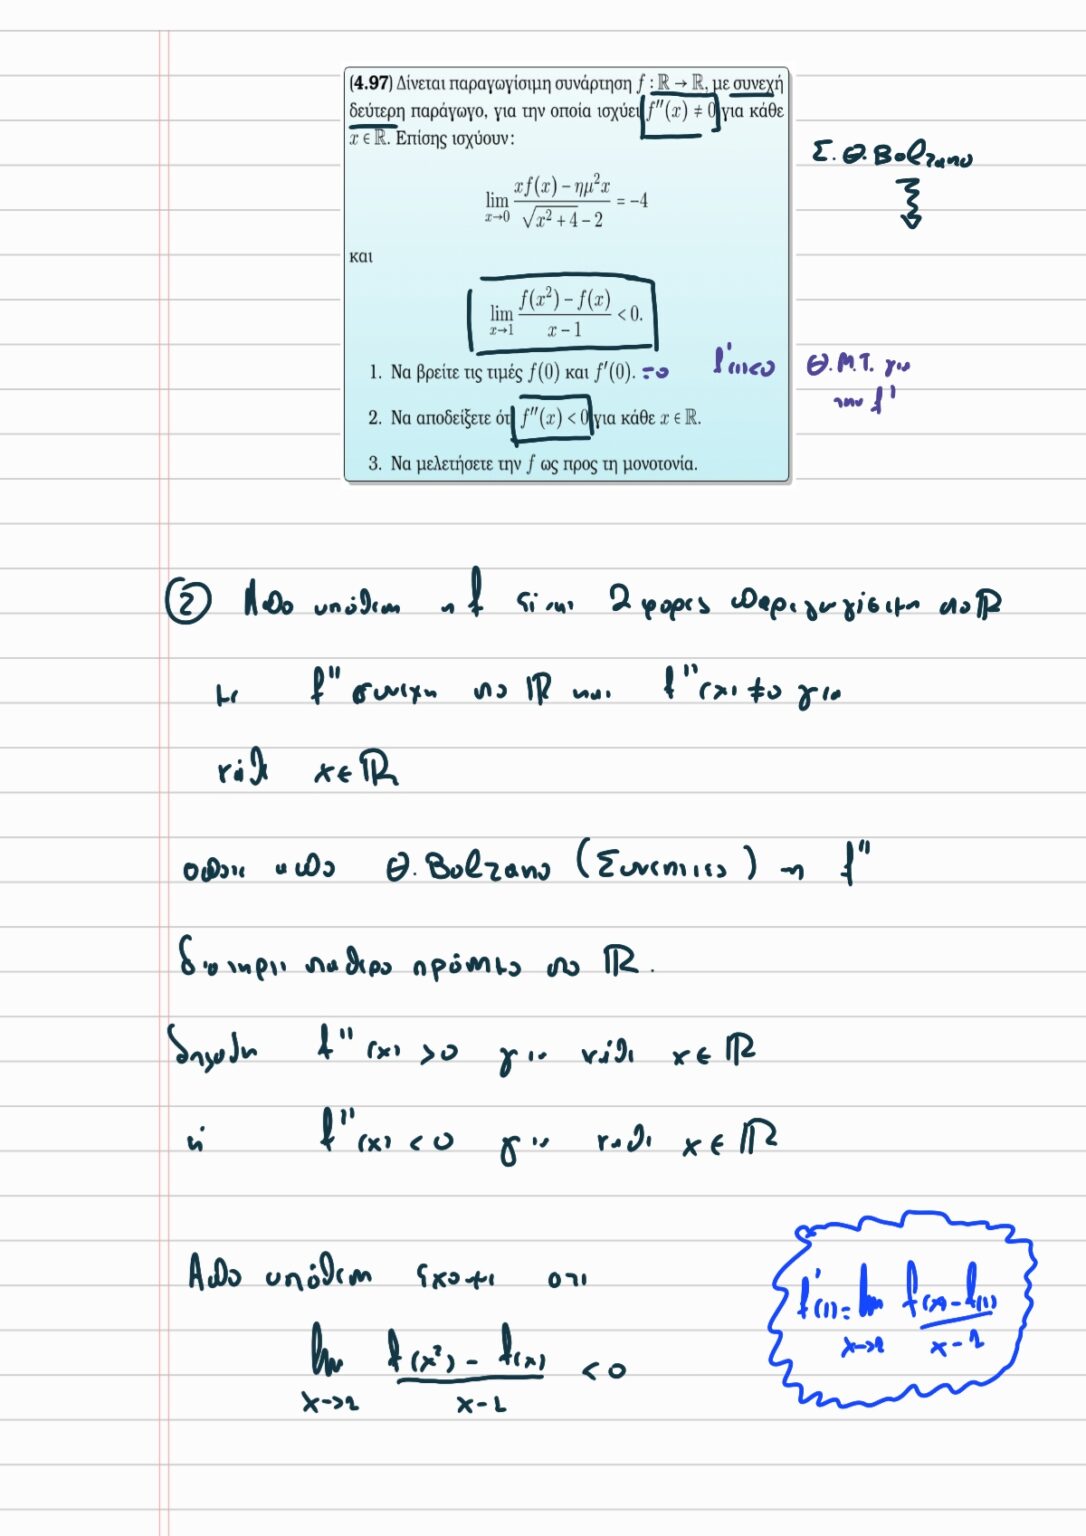 (4.97) Δίνεται παραγωγίσιμη συνάρτηση f : ℝ → ℝ, με συνεχή
δεύτερη παράγωγο, για την οποία ισχύει f''(x) ≠ 0 για κάθε
x ∈ ℝ. Επίσης ισχύουν:
Σ. Θ. Bolzano
lim x→0 (xf(x) − ημ²x)/(√(x² + 4) − 2) = −4
και
lim x→1 (f(x²) − f(x))/(x − 1) < 0.
1. Να βρείτε τις τιμές f(0) και f'(0). =0
f'(1)<0
Θ.Μ.Τ. για
την f'
2. Να αποδείξετε ότ f''(x) < 0 για κάθε x ∈ ℝ.
3. Να μελετήσετε την f ως προς τη μονοτονία.
② Απο υπόθεση η f είναι 2 φορες παραγωγίσιμη στο ℝ
με f'' συνεχη στο ℝ και f''(x) ≠ 0 για
κάθε x ∈ ℝ
οποτε απο Θ. Bolzano (Συνεπειες) η f''
διατηρει σταθερο πρόσημο στο ℝ.
δηλαδη f''(x) > 0 για κάθε x ∈ ℝ
ή f''(x) < 0 για καθε x ∈ ℝ
Απο υπόθεση έχουμε οτι
lim x→1 (f(x²) − f(x))/(x − 1) < 0
f'(1) = lim x→1 (f(x) − f(1))/(x − 1)